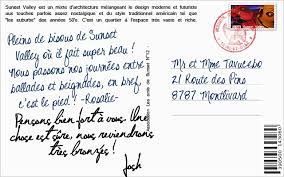 Sunset Valley est un mixte d'architecture mélangeant le design moderne et futuriste
aux touches parfois assez nostalgique et du style traditionnel américain tel que
"les suburbs" des années 50's. C'est un quartier à l'espace mix vaste et riche.
Pleins de bisous de Sunset
Valley où il fait super beau !
Nous passons nos journées entre
ballades et baignades, en bref
c'est le pied ! -Rosalie-
Pensons bien fort à vous. Une
chose est sûre, nous reviendrons
très bronzés !
Josh
Mr et Mme Tavucebo
21 Route des Pins
8787 Montlevard